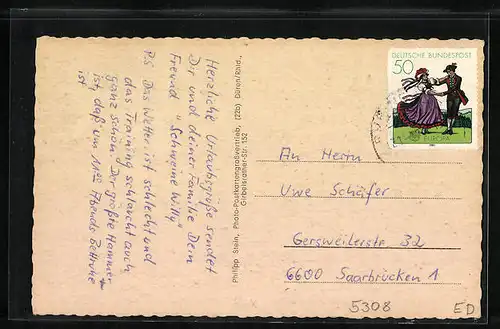 Herzliche Urlaubsgrüße sendet
Dir und deiner Familie Dein
Freund "Schweine Willy"
P.S. Das Wetter ist schlecht und
das Training schlaucht auch
ganz schön. Der größte Hammer
ist, daß um 11:00 Abends Bettruhe
ist
Philipp Stein, Photo-Postkartengroßvertrieb, (22b) Düren/Rhld.,
Girbelsrather-Str. 152
DEUTSCHE BUNDESPOST
50
EUROPA
An Herrn
Uwe Schäfer
Gersweilerstr. 32
6600 Saarbrücken 1
5308
ED